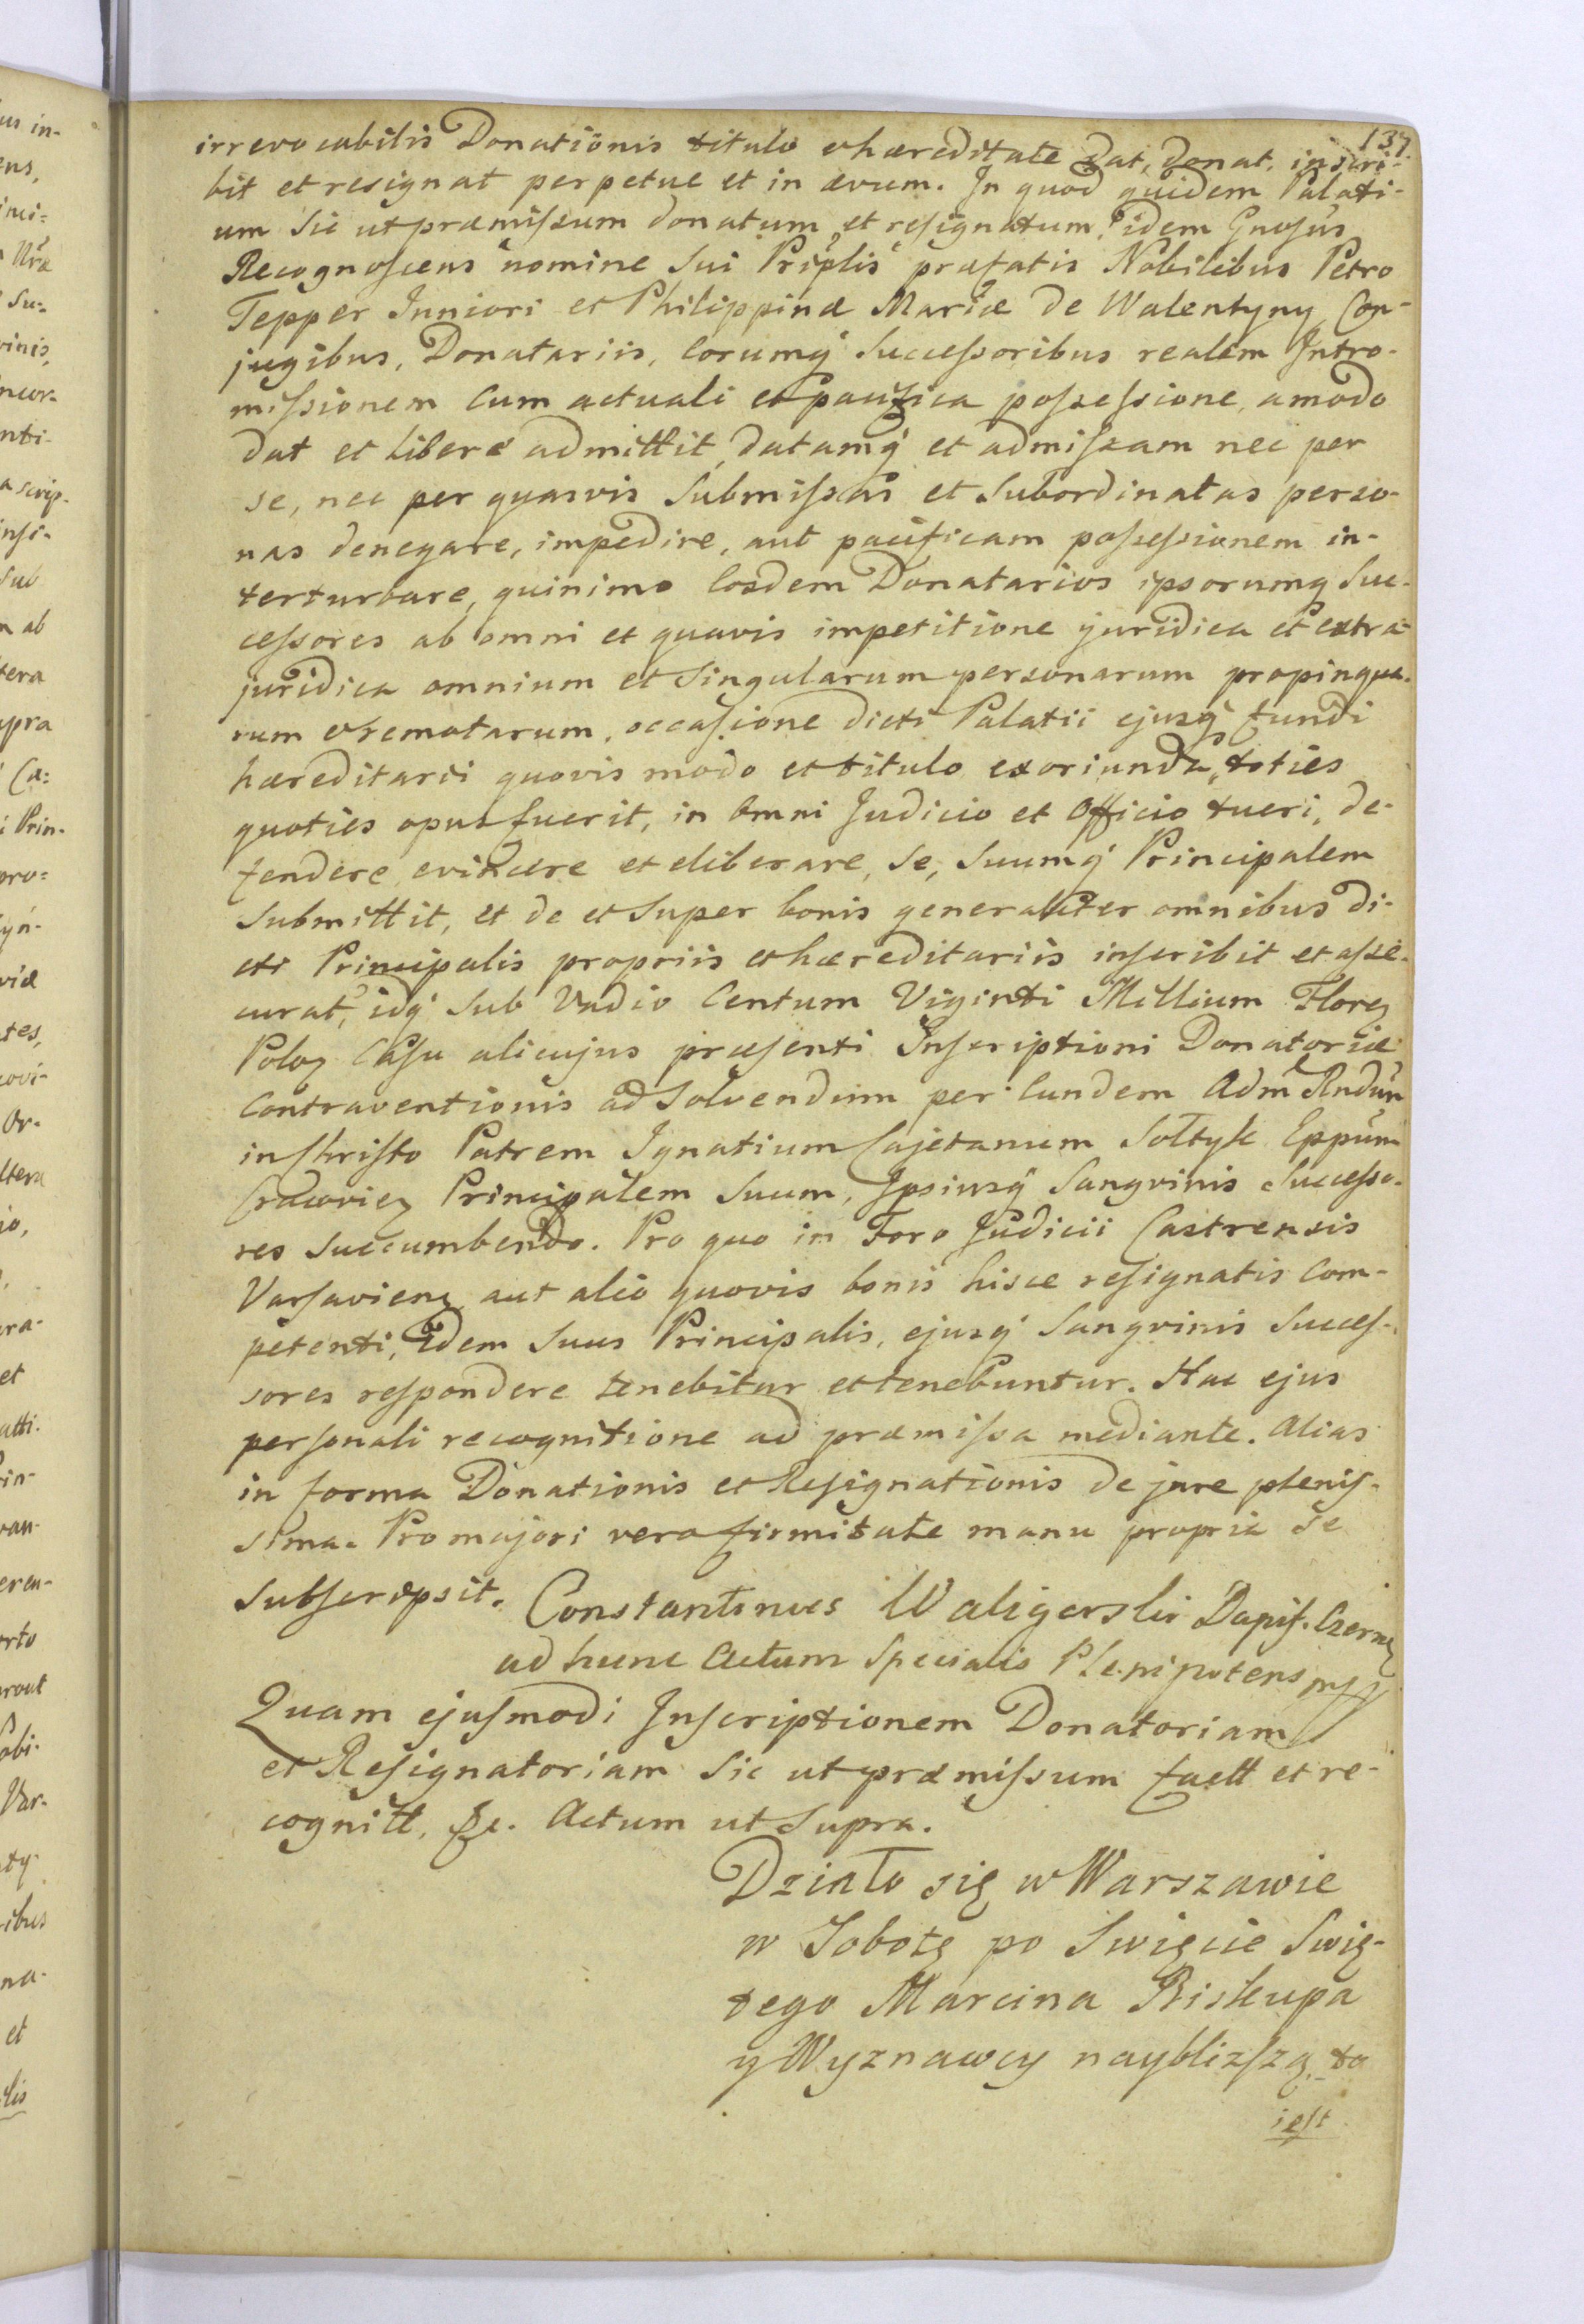 137.
irrevocabilis Donationis titulo et hæreditate dat, donat, inscri-
bit et resignat perpetue et in ævum. In quod quidem Palati-
um sic ut præmissum donatum et resignatum, idem Gnosus
Recognoscens nomine sui Priplis præfatis Nobilibus Petro
Tepper Juniori et Philippinæ Mariæ de Walentyny Con-
jugibus, Donatariis, Eorumq Successoribus realem Intro-
missionem cum actuali et pacifica possessione, amodo
dat et libere admittit, datamq et admissam nec per
se, nec per quasvis submissas et subordinatas perso-
nas denegare, impedire, aut pacificam possessionem in-
terturbare, quinimo Eosdem Donatarios ipsorumq Suc-
cessores ab omni et quavis impetitione juridica et extra
juridica omnium et singularum personarum propinqua-
rum et remotarum, occasione dicti Palatii ejusq fundi
hæreditarii quovis modo et titulo exoriunda, toties
quoties opus fuerit, in omni Judicio et Officio tueri, de-
fendere, evincere et eliberare, se, suumq Principalem
submittit, et de et super bonis generaliter omnibus di-
cti Principalis propriis et hæreditariis inscribit et asse-
curat, idq sub Vadio Centum Viginti Millium Floreꝫ
Poloꝫ Casu alicujus præsenti Inscriptioni Donatoriæ
Contraventionis ad solvendum per Eundem Adm Rndum
in Christo Patrem Ignatium Cajetanum Sołtyk Eppum
Cracovieꝫ Principalem suum, Ipsiusq Sangvinis Successo-
res succumbendo. Pro quo in Foro Judicii Castrensis
Varsavienꝫ aut alio quovis bonis hisce resignatis com-
petenti, Idem suus Principalis, ejusq Sangvinis Succes-
sores respondere tenebitur et tenebuntur. Hac ejus
personali recognitione ad præmissa mediante. Alias
in forma Donationis et Resignationis de jure plenis-
sima. Pro majori vero firmitate manu propria se
subscripsit. Constantinus Waligorski Dapif. Czernꝫ
ad hunc Actum Specialis Plenipotens mpp
Quam ejusmodi Inscriptionem Donatoriam
et Resignatoriam sic ut præmissum factt et re-
cognitt, &c. Actum ut supra.
Działo się w Warszawie
w Sobotę po Swięcie Swię-
tego Marcina Biskupa
y Wyznawcy nayblizszą, to
iest